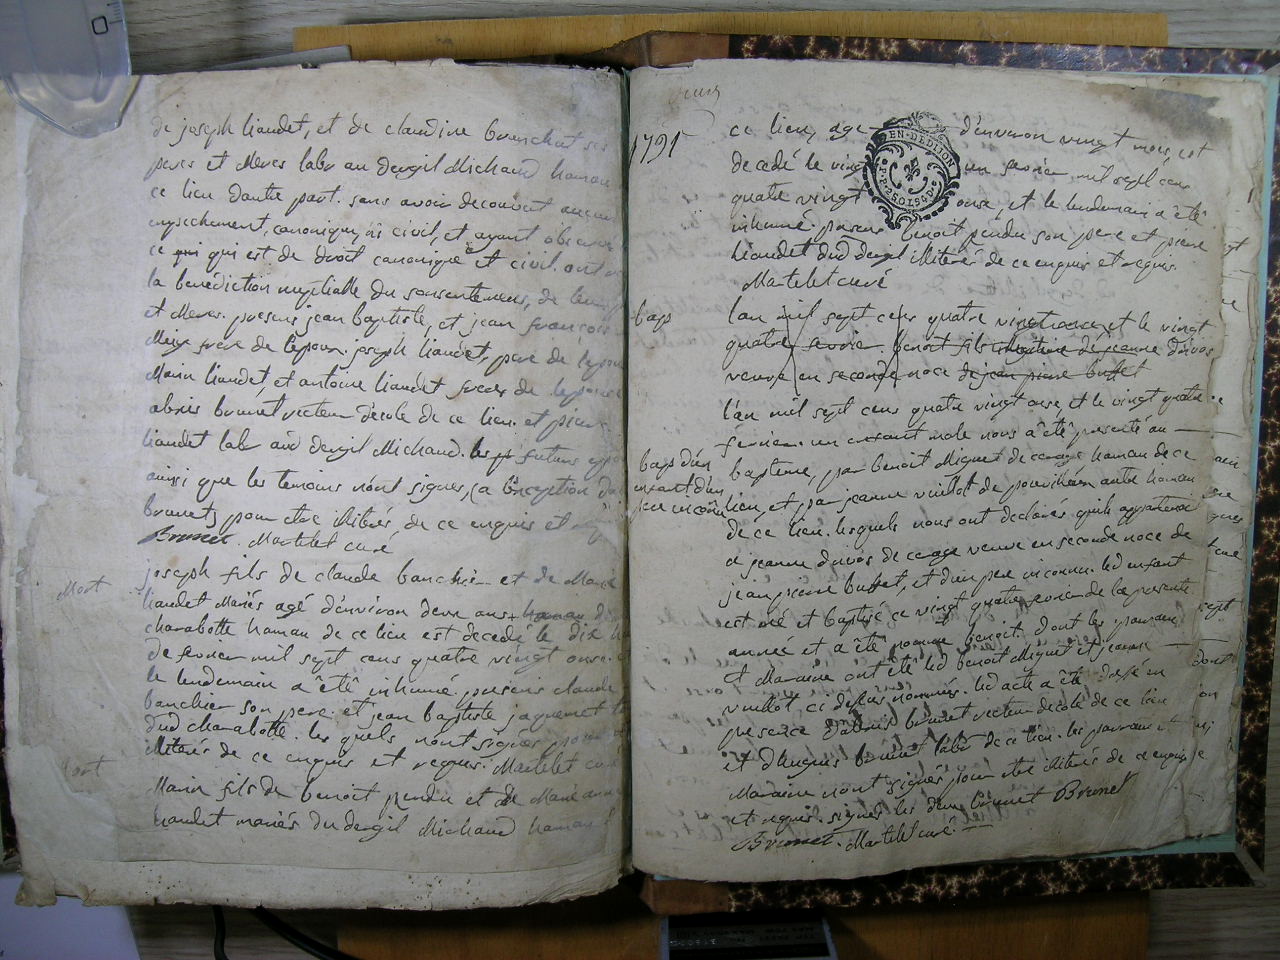 de joseph liaudet, et de claudine branchat ses
peres et Meres labr au dergil Michaud hamau
ce lieu dautre part. sans avoir decouvert aucun
empechement, canonique, ni civil, et ayant observé
ce qui qui est de droit canonique et civil. ont
la benédiction nuptialle du consentement, de leur
et Meres. presens jean baptiste, et jean françois
frere de lepoux. joseph liaudet, pere de lepouse
Marin liaudet, et antoine liaudet freres de lepouse
brunet recteur d'école de ce lieu. et pierre
liaudet labr aud dergil Michaud. les futurs epoux
ainsi que les temoins n'ont signés, (a l'exception
brunet) pour etre illiterés de ce enquis et
Brunet. Martelet curé
Mort
joseph fils de claude banchier et de Marie
liaudet Mariés agé d'environ deux ans
charabotte hamau de ce lieu est decedé le dix
de fevrier mil sept cens quatre vingt onze. et
le lendemain a êtê inhumé. presens claude
banchier son pere. et jean baptiste jaquemet
dud charabotte. les quels n'ont signés pour
illiterés de ce enquis et requis. Martelet curé
Mort
Marin fils de benoit pendu et de Marie anne
liaudet mariés du dergil Michaud hamau
1791
ce lieu, agé d'environ vingt mois, est
EN·DE DIJON
decedé le vingt un fevrier mil sept cens
quatre vingt onze, et le lendemain a êtê
inhumé. presens benoit pendu son pere et pierre
liaudet dud dergil illiterés de ce enquis et requis.
Martelet curé
bap
lan mil sept cens quatre vingt onze, et le vingt
quatre fevrier benoit fils de jeanne duivos
veuve en seconde noce de jean pierre buffet
l'an mil sept cens quatre vingt onze, et le vingt quatre
fevrier. un enfant male nous a êtê presenté au
bap d'un
enfant d'un
pere inconu
bapteme, par benoit Miguet de hamau de ce
lieu, et par jeanne vuillot de autre hamau
de ce lieu. lesquels nous ont declarés quil appartenoit
a jeanne duivos de veuve en seconde noce de
jean pierre buffet, et d'un pere inconnu. led enfant
est né et baptisé ce vingt quatre fevrier de la presente
année et a êtê nommé benoit. dont les parrain
et Maraine ont êtê led benoit Miguet et jeanne
vuillot ci dessus nommés. led acte a êtê dressé en
presence brunet recteur decole de ce lieu
et brunet labr de ce lieu. les parrain et
Maraine n'ont signés pour etre illiterés de ce enquis
et requis. signés les deux brunet Brunet
Brunet. Martelet curé